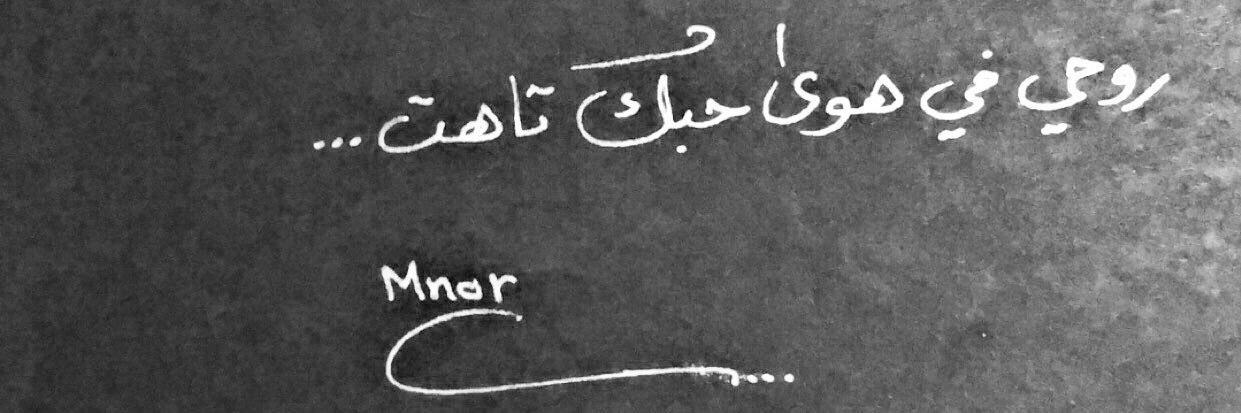 روحي في هوىٰ حبك تاهت...
Mnor
...